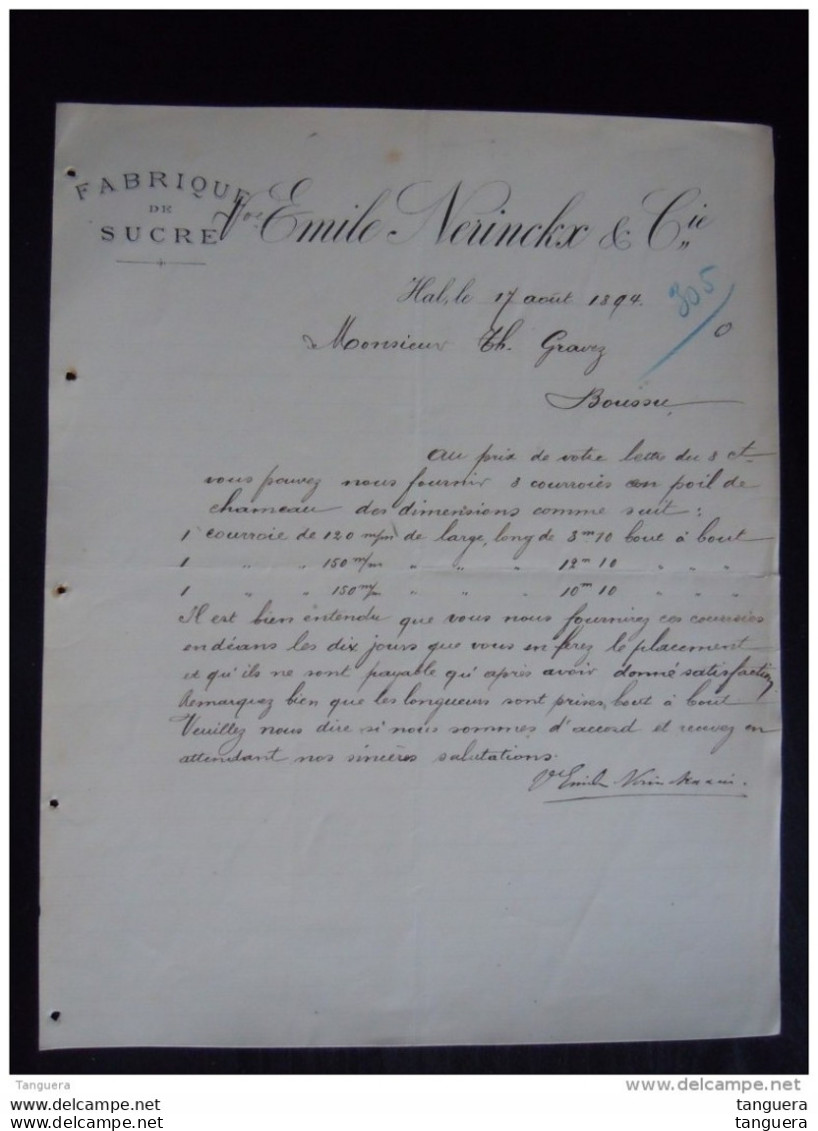 FABRIQUE
DE
SUCRE
Vve Emile Nerinckx & Cie
Hal, le 17 août 1894.
305
Monsieur Th. Gravez
Boussu
Au prix de votre lettre du 8 ct
vous pouvez nous fournir 3 courroies en poil de
chameau des dimensions comme suit:
1 courroie de 120 m/m de large, long de 8m10 bout à bout
1 " " 150 m/m " " " 12m10 " " "
1 " " 150 m/m " " " 10m10 " " "
Il est bien entendu que vous nous fournirez ces courroies
endéans les dix jours que vous en ferez le placement
et qu'ils ne sont payable qu'après avoir donné satisfaction,
Remarquez bien que les longueurs sont prises bout à bout
Veuillez nous dire si nous sommes d'accord et recevez en
attendant nos sincères salutations.
Ve Emile
Tanguera
delcampe.net
tanguera
tanguera
tanguera
tanguera